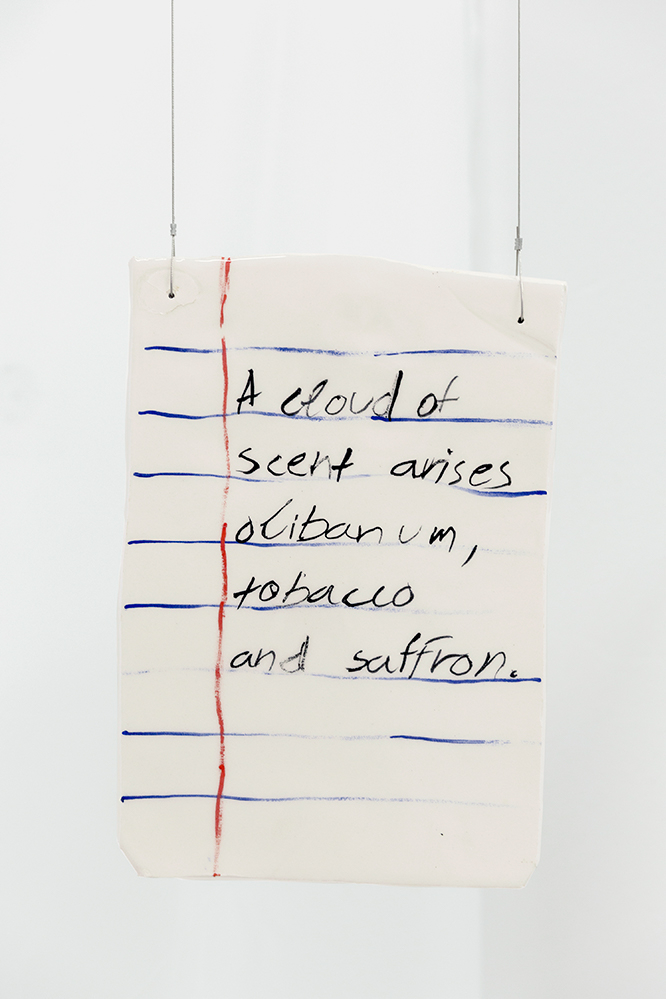 A cloud of
scent arises
olibanum,
tobacco
and saffron.